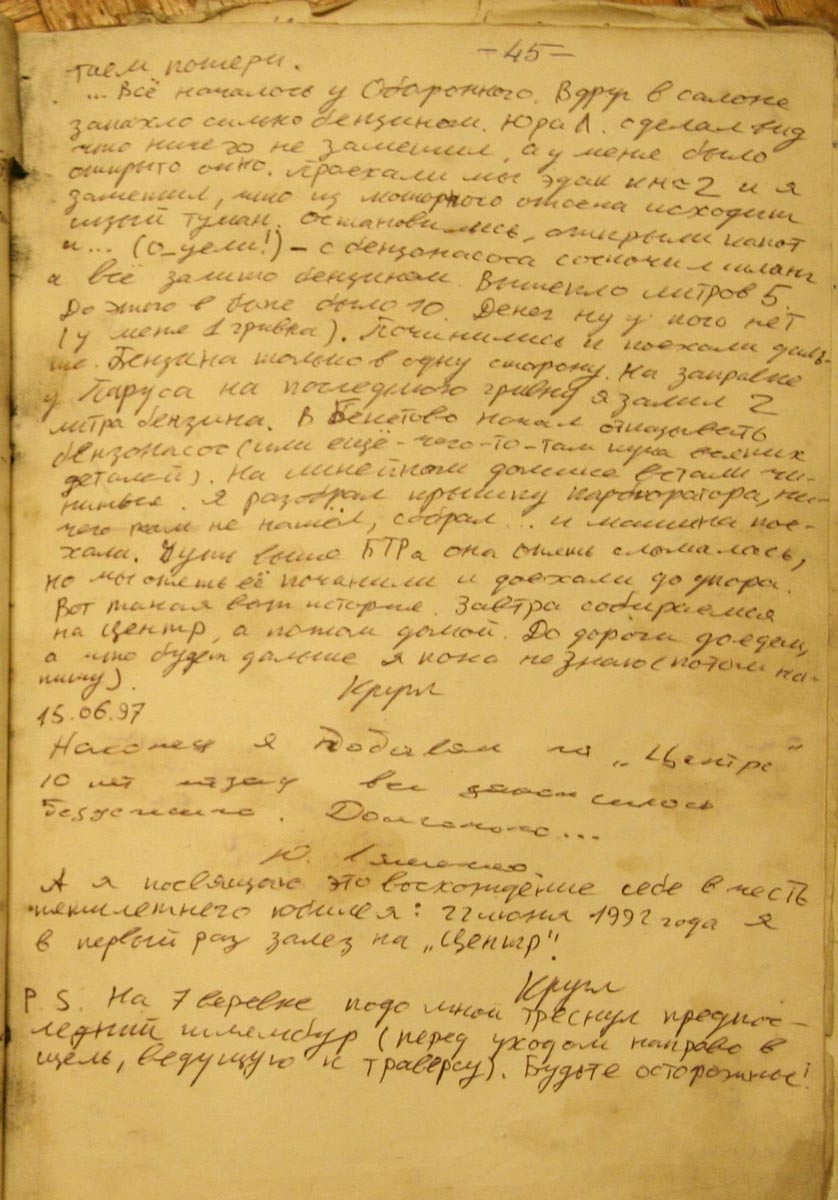 -45-
таем потери.
... Всё началось у Оборонного. Вдруг в салоне
запахло сильно бензином. Юра Л. сделал вид
что ничего не заметил, а у меня было
открыто окно. Проехали мы эдак км 2 и я
заметил, что из моторного отсека исходит
сизый туман. Остановились, открыли капот
и... (о_уели!) – с бензонасоса соскочил шланг
и всё залито бензином. Вытекло литров 5.
До этого в баке было 10. Денег ни у кого нет
(у меня 1 гривна). Починились и поехали даль-
ше. Бензина только в одну сторону. На заправке
у Паруса на последнюю гривну я залил 2
литра бензина. В начал отказывать
бензонасос (или ещё-чего-то-там куча всяких
деталей). На линейном домике встали чи-
ниться. Я разобрал крышку карбюратора, ни-
чего там не нашёл, собрал... и машина пое-
хала. Чуть выше БТРа она опять сломалась,
но мы опять её починили и доехали до упора.
Вот такая вот история. Завтра собираемся
на Центр, а потом домой. До дороги доедем,
а что будет дальше я пока не знаю (потом на-
пишу).
Кругл
15.06.97
Наконец я на „Центре"
10 лет назад все
Ю.
А я посвящаю это восхождение себе в честь
пятилетнего юбилея: 22 июня 1992 года я
в первый раз залез на „Центр"!
Кругл
P.S. На 7 веревке подо мной треснул предпос-
ледний шлямбур (перед уходом направо в
щель, ведущую к траверсу). Будьте осторожны!